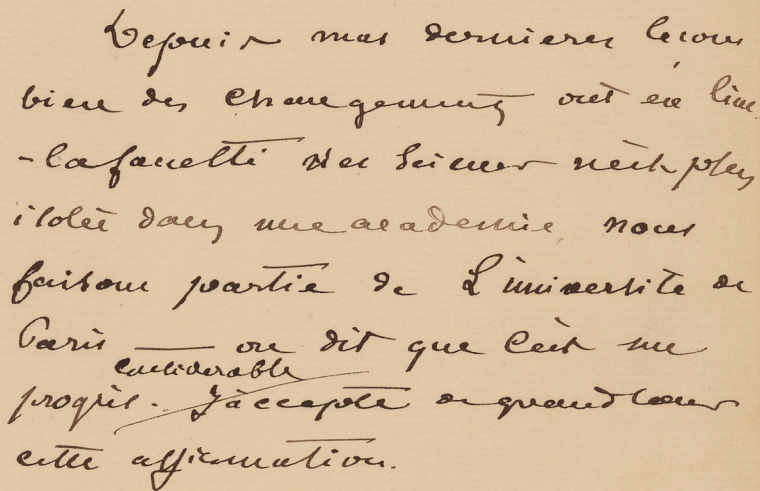 Depuis mes dernieres lecons
bien des changements ont eu lieu
- la faculté des Sciences n'est plus
isolée dans une academie, nous
faisons partie de L'université de
Paris — on dit que c'est un
considerable
progrès. J'accepte de grand coeur
cette affirmation.